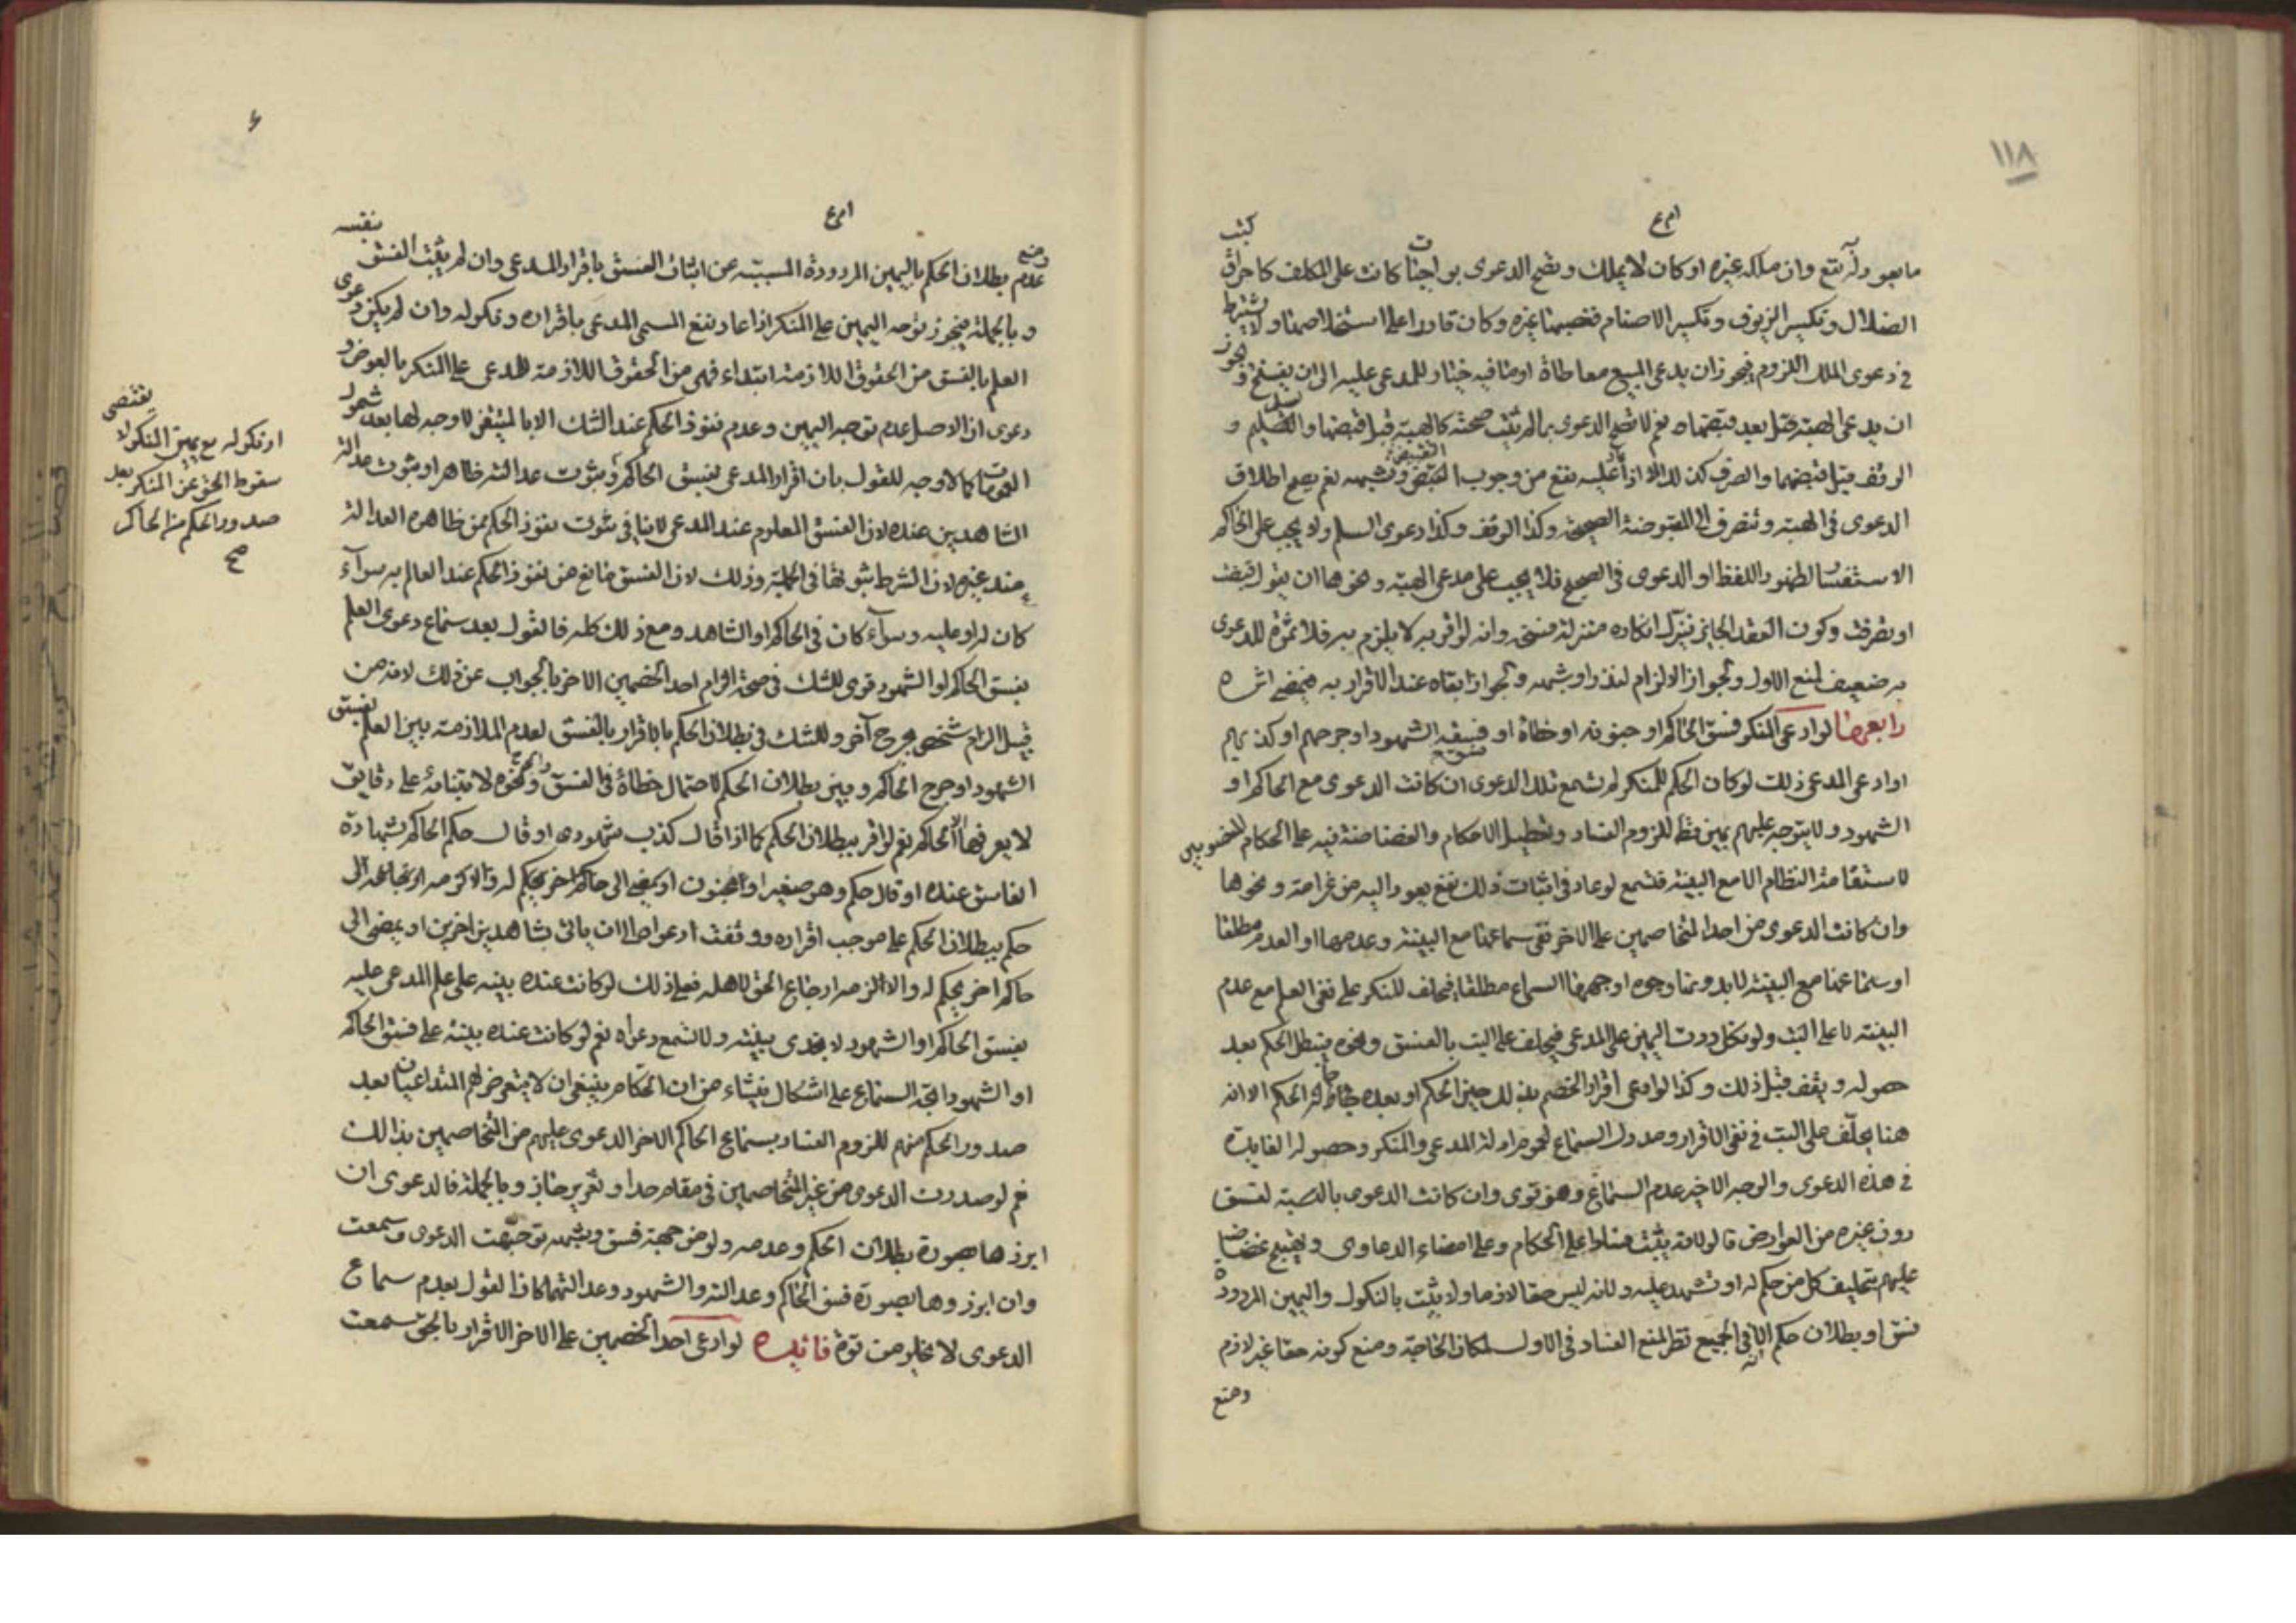 ١١٨
ما يعود له نفع وان ملكه غيره او كان لا يملك وتصح الدعوى بواجبات كانت على المكلف كاحراق كتب
الضلال وتكسير الزيوف وتكسير الاصنام فغصبها غيره وكان قادرا على استخلاصها ولا يشترط
في دعوى الملك اللزوم فيجوز ان يدعي المبيع معاطاة او ما فيه خيار للمدعى عليه الى ان يفسخ ويجوز
ان يدعي الهبة قبل بعد قبضها نعم لا تصح الدعوى بما لم يثبت صحته كالهبة قبل قبضها والتسليم و
الوقف قبل قبضهما والصرف كذلك الا اذا عليه نفع من وجوب القبض وشبهه نعم يصح اطلاق
الدعوى في الهبة وتنصرف الى المقبوضة الصحيحة وكذا الوقف وكذا دعوى السلم ولا يجب على الحاكم
الاستفسار لظهور اللفظ او الدعوى في الصحيح فلا يجب على مدعي الهبة ونحوها ان يقول قبضت
او تصرفت وكون العقد الجايز ينزل انكاره منزلة فسخه وانه لو اقر به لا يلزم به فلا ثمرة للدعوى
به ضعيف لمنع الاول ولجواز الالزام لنذر او شبهه ولجواز ابقاه عند الاقرار به فيمضي اثره
رابعها لو ادعى المنكر فسق الحاكم او جنونه او خطاة او فسق الشهود او جرحهم او كذبهم
او ادعى المدعي ذلك لو كان الحكم للمنكر لم تسمع تلك الدعوى ان كانت الدعوى مع الحاكم او
الشهود ولا يتوجه عليهم يمين قط للزوم الفساد وتعطيل الاحكام والغضاضة فيه على الحكام المنصوبين
لاستقامة النظام الا مع البينة فتسمع لو عاد في اثبات ذلك نفع يعود اليه من غرامة ونحوها
وان كانت الدعوى من احد المتخاصمين على الاخر ففي سماعها مع البينة وعدمها او العدم مطلقا
او سماعها مع البينة لا بدونها وجوه اوجهها السماع مطلقا فيحلف المنكر على نفي العلم مع عدم
البينة لا على البت ولو نكل ردت اليمين على المدعي فيحلف على البت بالفسق ونحوه فيبطل الحكم بعد
حصوله ويقف قبل ذلك وكذا لو ادعى اقرار الخصم بذلك حين الحكم او بعده الحكم الا انه
هنا يحلف على البت في نفي الاقرار ومدرك السماع لعموم ادلة المدعي والمنكر وحصول الفايدة
في هذه الدعوى والوجه الاخير عدم السماع وهو قوي وان كانت الدعوى بالنسبة لفسق
دون غيره من العوارض قالوا لانه يثبت فسادا على الحكام وعلى امضاء الدعاوى
عليهم بتحليف كل من حكم له او شهد عليه ولانه ليس حقا لازما ولا يثبت بالنكول واليمين المردودة
فسق او بطلان حكم الا انه في الجميع نظر لمنع الفساد في الاول لمكان الحاجة ومنع كونه حقا غير لازم
ومنع
ومنع
عدم بطلان الحكم باليمين المردودة المسببة عن اثبات الفسق باقرار المدعي وان لم يثبت الفسق نفسه
وبالجملة فيجوز توجه اليمين على المنكر اذا عاد نفع المسمى المدعى باقراره ونكوله وان لم يكن دعوى
العلم بالفسق من الحقوق اللازمة ابتداء فهي من الحقوق اللازمة للمدعي على المنكر بالعوض و
دعوى ان الاصل عدم توجه اليمين وعدم نفوذ الحكم عند الشك الا بالمتيقن لا وجه لها بعد شمول
العمومات كما لا وجه للقول بان اقرار المدعي بفسق الحاكم وثبوت عدالته ظاهرا وثبوت عدالة
الشاهدين عنده لان الفسق المعلوم عند المدعي لا ينافي ثبوت نفوذ الحكم من ظاهره العدالة
عند غيره لان الشرط ثبوتها في الجملة وذلك لان الفسق مانع من نفوذ الحكم عند العالم به سوآء
كان له او عليه وسوآء كان في الحاكم او الشاهد ومع ذلك كله فالقول بعدم سماع دعوى العلم
بفسق الحاكم او الشهود قوي للشك في صحة الزام احد الخصمين الاخر بالجواب عن ذلك لانه من
قبيل الزام شخص بجرح آخر وللشك في بطلان الحكم بالاقرار بالفسق لعدم الملازمة بين العلم بفسق
الشهود او جرح الحاكم وبين بطلان الحكم لاحتمال خطاة في الفسق ونحوه لابتنائه على دقايق
لا يعرفها الا الحاكم نعم لو اقر ببطلان الحكم كما اذا قال كذب شهودي او قال حكم الحاكم بشهادة
الفاسق عنده او قال حكم وهو صغير او مجنون او يمضي الى حاكم اخر يحكم له والا لزمه ارجاعه الى
حكم ببطلان الحكم على موجب اقراره ووقفت الدعوى الى ان ياتي بشاهدين اخرين او يمضي الى
حاكم اخر يحكم له والا الزمه ارجاع الحق لاهله فعلى ذلك لو كانت عنده بينه على علم المدعى عليه
بفسق الحاكم او الشهود لا تجدي بينته ولا تسمع دعواه نعم لو كانت عنده بينة على فسق الحاكم
او الشهود اتجه السماع على اشكال ينشاء من ان الحكام ينبغي ان لا يتعرض لهم المتداعيان بعد
صدور الحكم منهم للزوم الفساد بسماع الحاكم الاخر الدعوى عليهم من المتخاصمين بذلك
نعم لو صدرت الدعوى من غير المتخاصمين في مقام حد او تعزير جاز وبالجملة فالدعوى ان
ابرزها بصورة بطلان الحكم وعدمه ولو من جهة فسق وشبهه توجهت الدعوى وسمعت
وان ابرزوها بصورة فسق الحاكم وعدالته والشهود وعدالتهما كان القول بعدم سماع
الدعوى لا يخلو من قوة فائدة لو ادعى احد الخصمين على الاخر الاقرار بالحق سمعت
يقتضي
او نكوله مع يمين المنكر لا
سقوط الحق عن المنكر بعد
صدور الحكم من الحاكم
صح